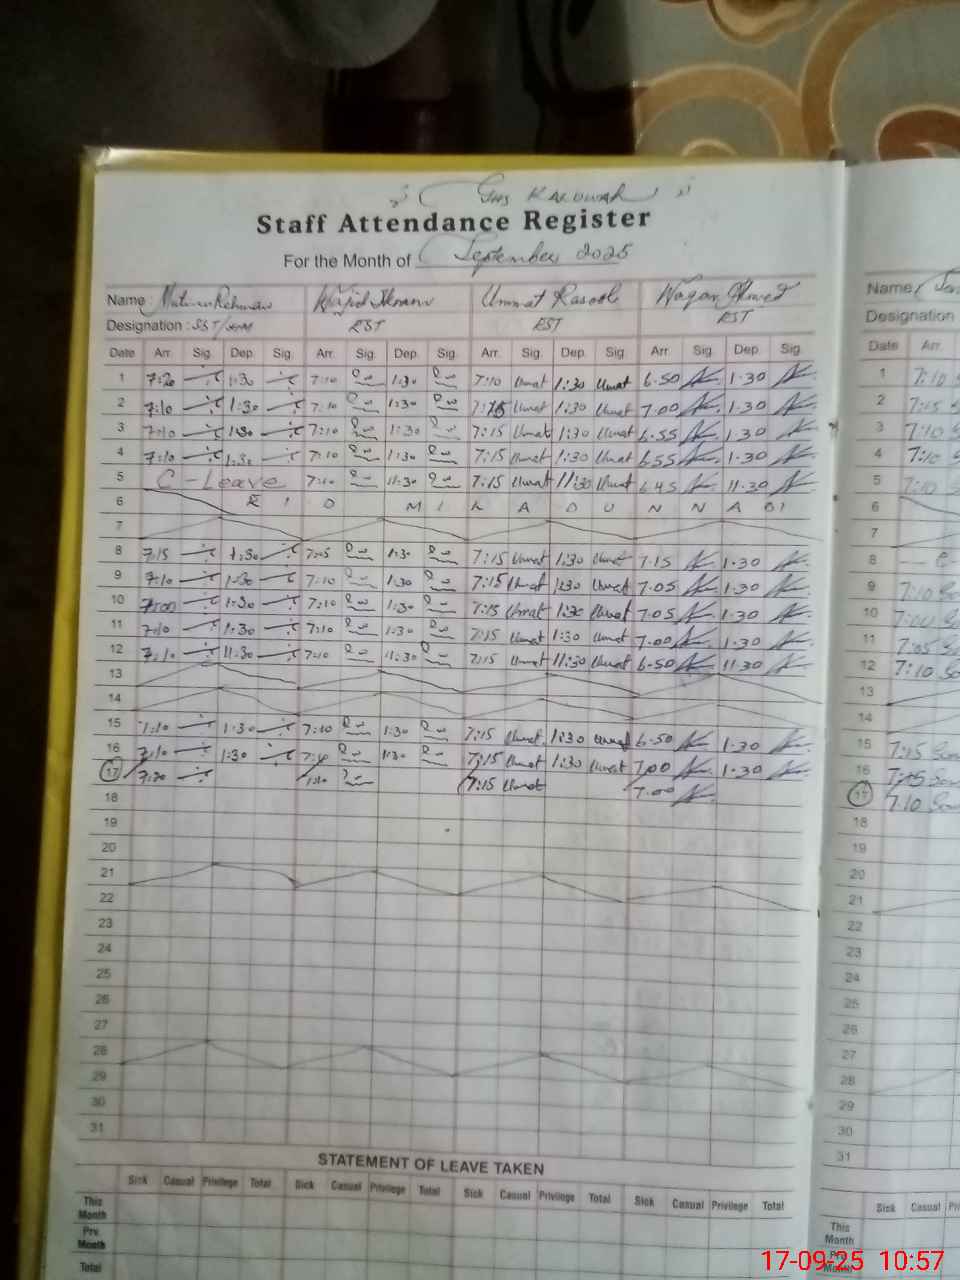 GHS KALUWAL
Staff Attendance Register
For the Month of September 2025
Name : Wajid Ikram Ummat Rasool Waqar Ahmed
Designation : SST/ EST EST EST
Date Arr. Sig. Dep. Sig. Arr. Sig. Dep. Sig. Arr. Sig. Dep. Sig. Arr. Sig. Dep. Sig.
1 7:20 1:30 7:10 1:30 7:10 Umat 1:30 Umat 6.50 1.30
2 7:10 1:30 7:10 1:30 7:15 Umat 1:30 Umat 7.00 1.30
3 7:10 1:30 7:10 1:30 7:15 Umat 1:30 Umat 6.55 1.30
4 7:10 1:30 7:10 1:30 7:15 Umat 1:30 Umat 6.55 1.30
5 C-Leave 7:10 11:30 7:15 Umat 11:30 Umat 6.45 11.30
6
7
8 7:15 1:30 7:05 1:30 7:15 Umat 1:30 Umat 7.15 1.30
9 7:10 1:30 7:10 1:30 7:15 Umat 1:30 Umat 7.05 1.30
10 7:00 1:30 7:10 1:30 7:15 Umat 1:30 Umat 7.05 1.30
11 7:10 1:30 7:10 1:30 7:15 Umat 1:30 Umat 7.00 1.30
12 7:10 11:30 7:10 11:30 7:15 Umat 11:30 Umat 6.50 11.30
13
14
15 7:10 1:30 7:10 1:30 7:15 Umat 1:30 Umat 6.50 1.30
16 7:10 1:30 7:10 1:30 7:15 Umat 1:30 Umat 7.00 1.30
17 7:20 7:15 Umat 7.00
18
19
20
21
22
23
24
25
26
27
28
29
30
31
STATEMENT OF LEAVE TAKEN
Sick Casual Privilege Total Sick Casual Privilege Total Sick Casual Privilege Total Sick Casual Privilege Total
This Month
Prv. Month
Total
Name
Designation
Date Arr.
1 7:10
2 7:15
3 7:10
4 7:10
5 7:10
6
7
8
9 7:10
10 7:00
11 7:05
12 7:10
13
14
15 7:15
16 7:15
17 7:10
18
19
20
21
22
23
24
25
26
27
28
29
30
31
Sick Casual
This Month
Month
17-09-25 10:57